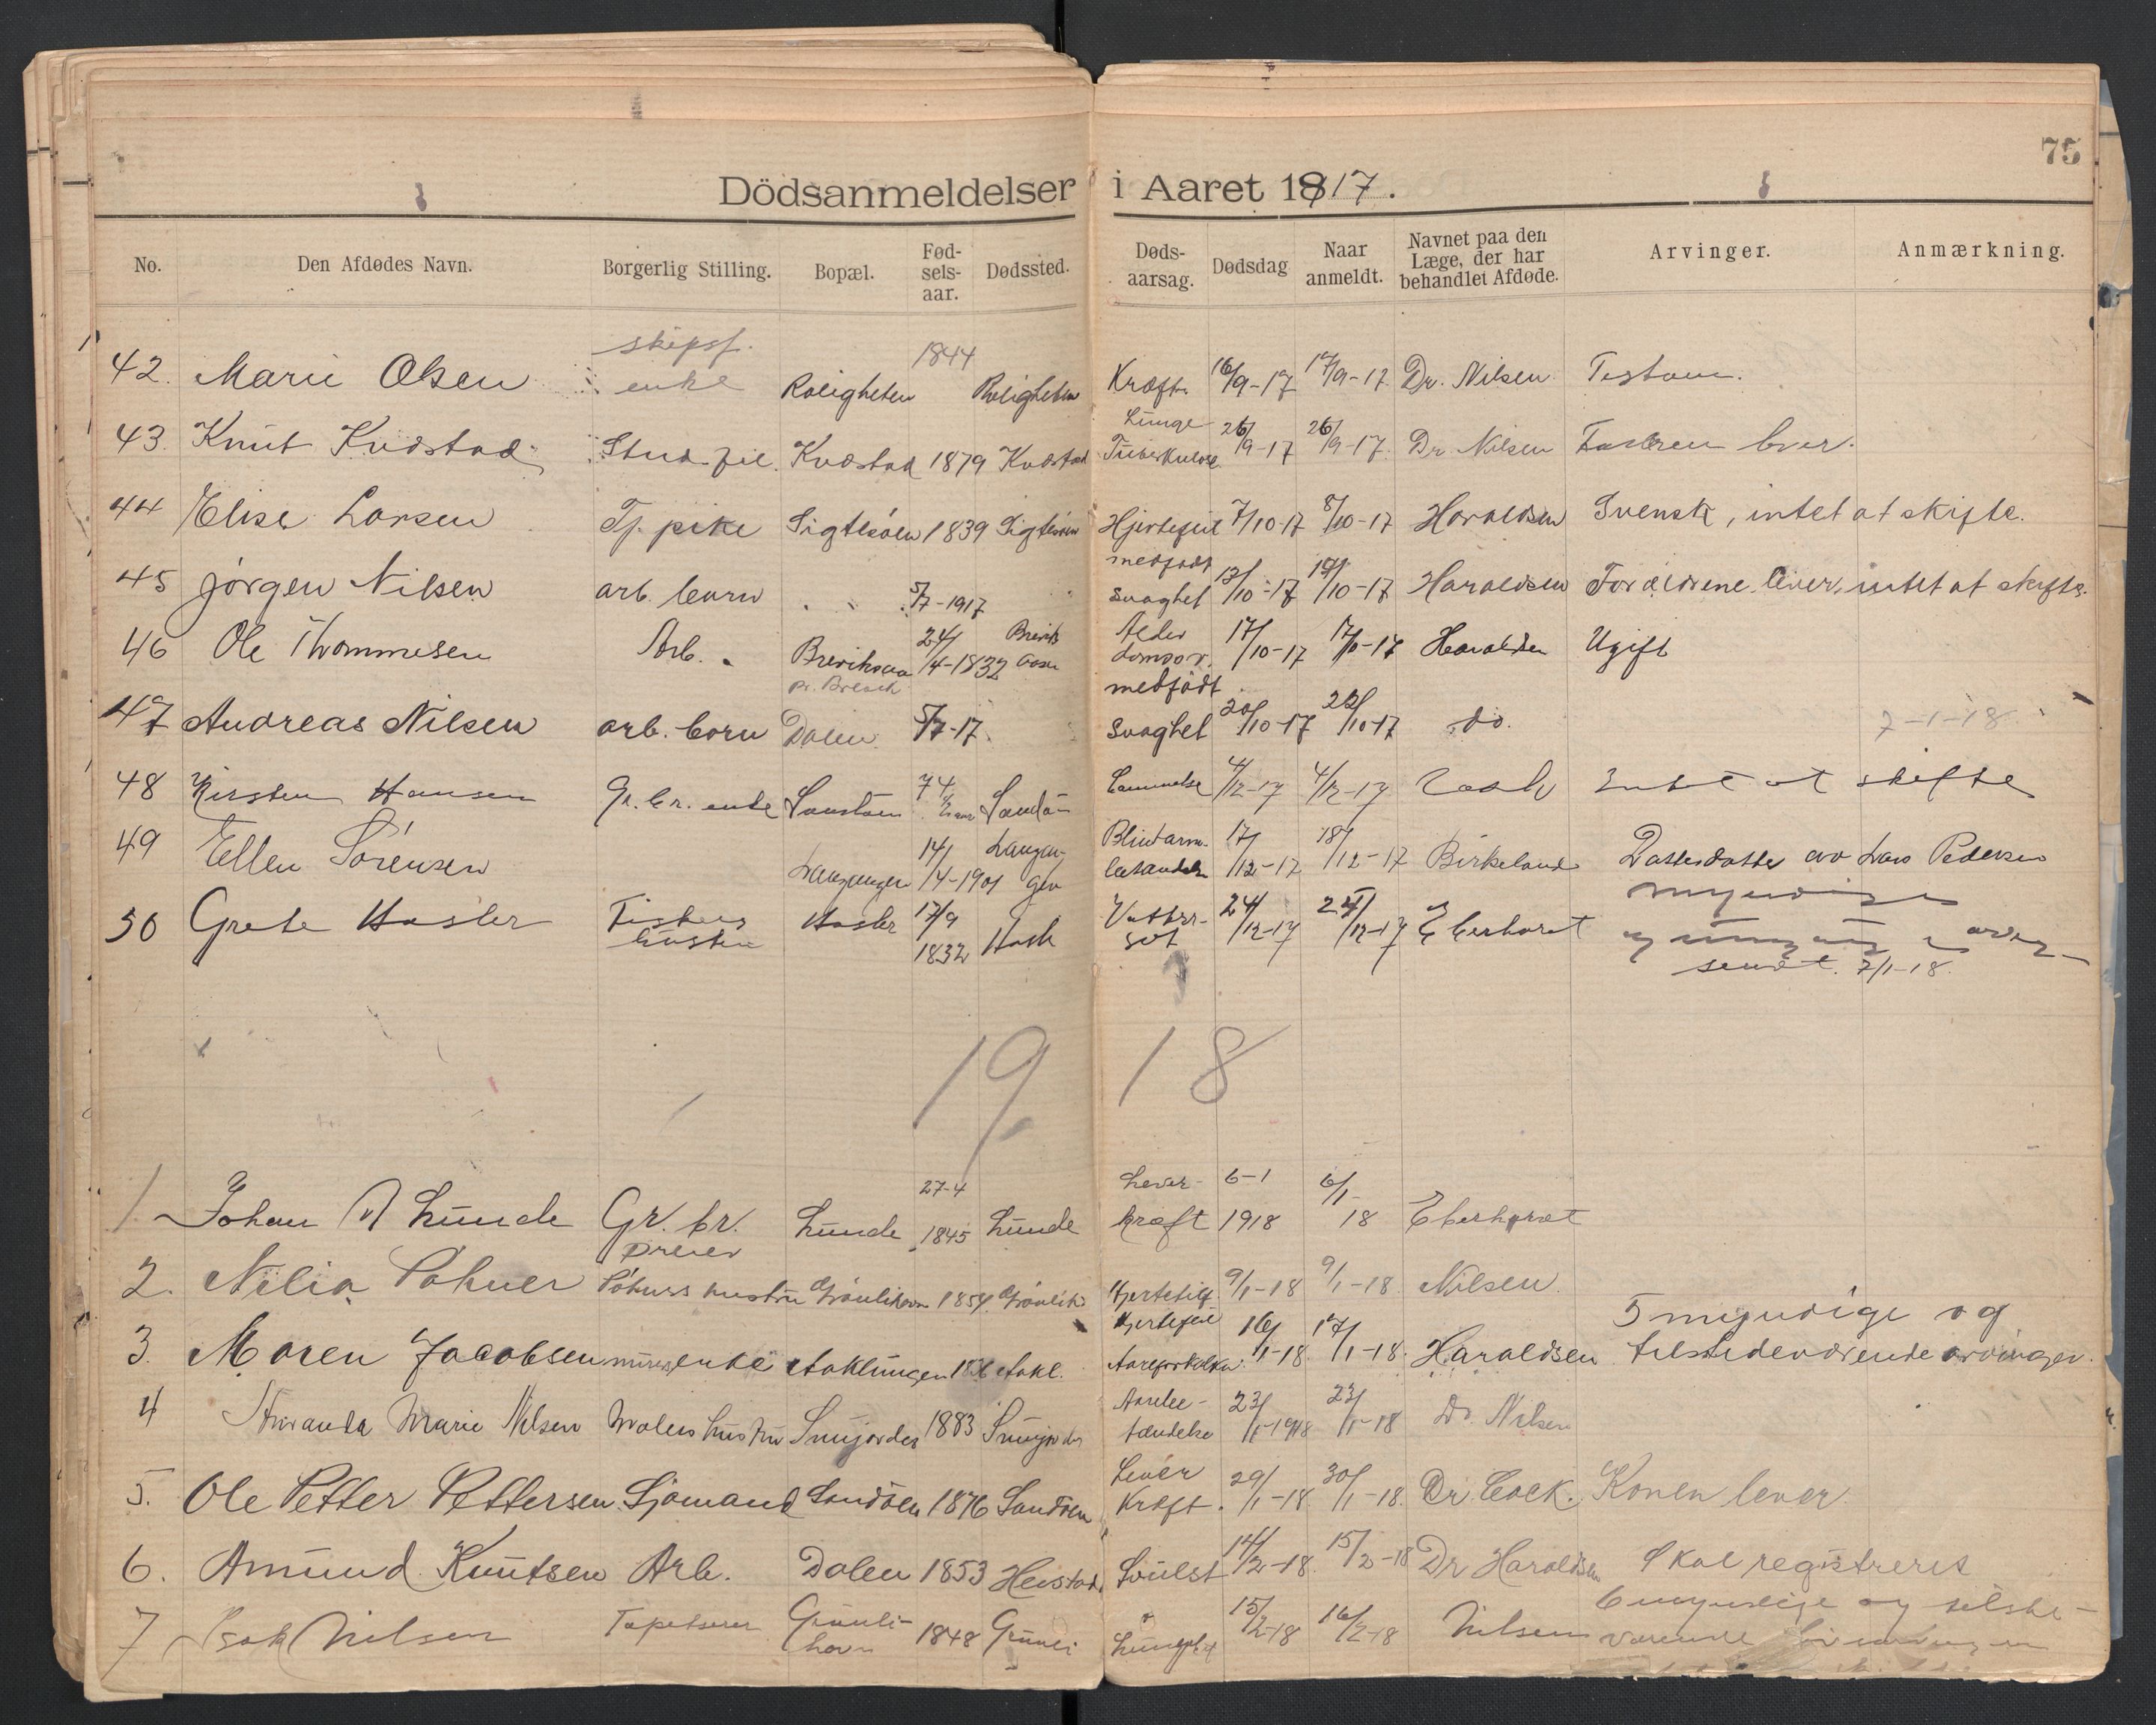 75
Dödsanmeldelser i Aaret 1917.
No. Den Afdødes Navn. Borgerlig Stilling. Bopæl. Fød-sels-aar. Dødssted. Døds-aarsag. Dødsdag Naar anmeldt. Navnet paa den Læge, der har behandlet Afdøde. Arvinger. Anmærkning.
42. Marie Olsen skipsf. enke Roligheten 1844 Roligheten Kræft 16/9-17 17/9-17 Dr. Nilsen Testam.
43. Knut Kvæstad Stud. fil. Kvæstad 1879 Kvæstad Lunge Tuberkulose 26/9-17 26/9-17 Dr Nilsen Faderen lever.
44 Elise Larsen Tj. pike Sigtesøen 1839 Sigtesøen Hjertefeil 7/10-17 8/10-17 Haraldsen Svensk, intet at skifte.
45 Jørgen Nilsen arb. barn " " 5/7-1917 " medfødt svaghet 13/10-17 17/10-17 Haraldsen Forældrene lever, intet at skifte.
46 Ole Thommesen Arb. Breviksaa pr. Brevik 24/4-1832 Breviks aasen Alderdomssv. 17/10-17 17/10-17 Haraldsen Ugift
47 Andreas Nilsen arb. barn Dalen 5/7-17 medfödt svaghet 20/10-17 22/10-17 do. 7-1-18
48 Kirsten Hansen Gr. br. enke Sandöen 74 1/2 aar Sandö- Lammelse 4/12-17 4/12-17 Intet at skifte
49 Ellen Sörensen Langangen 14/4-1901 Langangen Blindarm betændelse 17/12-17 18/12-17 Birkeland Datterdatter av Lars Pedersen
50 Grete Hasler Fiskers hustru Hasler 17/9 1832 Hasle Vattersot 24/12-17 27/12-17 Eberhardt myndige
sendt. 7/1-18.
19 18
1. Johan A Lunde Gr. br. Lunde 27-4 1845 Lunde Lever-kræft 6-1 1918 6/1-18 Eberhardt
2. Nilia Påhner Dreier Påhners hustru Grönlihavn 1854 Grönlih. Hjertefeil 9/1-18 9/1-18 Nilsen
3. Maren Jacobsen murers enke Aaklungen Aakl. Hjertefeil Aareforkalkn. 16/1-18 17/1-18. Haraldsen 5 myndige og tilstedeværende arvinger.
4 Amanda Marie Nilsen Malers hustru Smijordet 1883 Smijordet Aarebe-tændelse 23/1-1918 23/1-18 Dr. Nilsen
5. Ole Petter Pettersen Sjömand Sandöen 1876 Sandöen Lever Kræft. 29/1-18 30/1-18. Dr. Cock. Konen lever.
6. Amund Knutsen Arb. Dalen 1853 Heistad. Svulst 14/2-18. 15/2-18 Dr Haraldsen Skal registreres
7 Isak Nilsen Tapetserer Grönli-havn 1848 Grönli 15/2-18 16/2-18 Nilsen 6 myndige og tilstedeværende